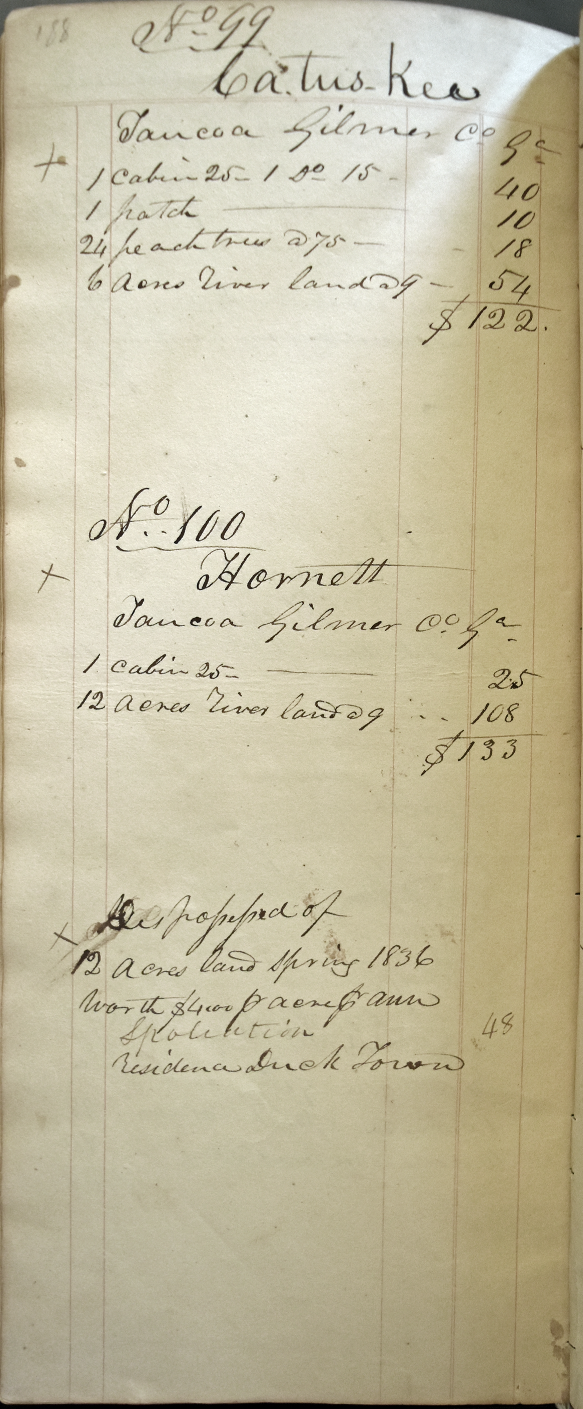 188
No. 99
Ca.tus-Kee
Taucoa Gilmer Co Ga
1 cabin 25- 1 Do 15 - 40
1 patch 10
24 peach trees @ 75 - 18
6 Acres River land @ 9 - 54
$122.
No. 100
Hornett
Taucoa Gilmer Co. Ga
1 cabin 25- 25
12 Acres River land @ 9 .. 108
$133
Dispossessed of
12 Acres land Spring 1836
Worth $4.00 p acre p ann
Spoliation 48
residence Duck Town